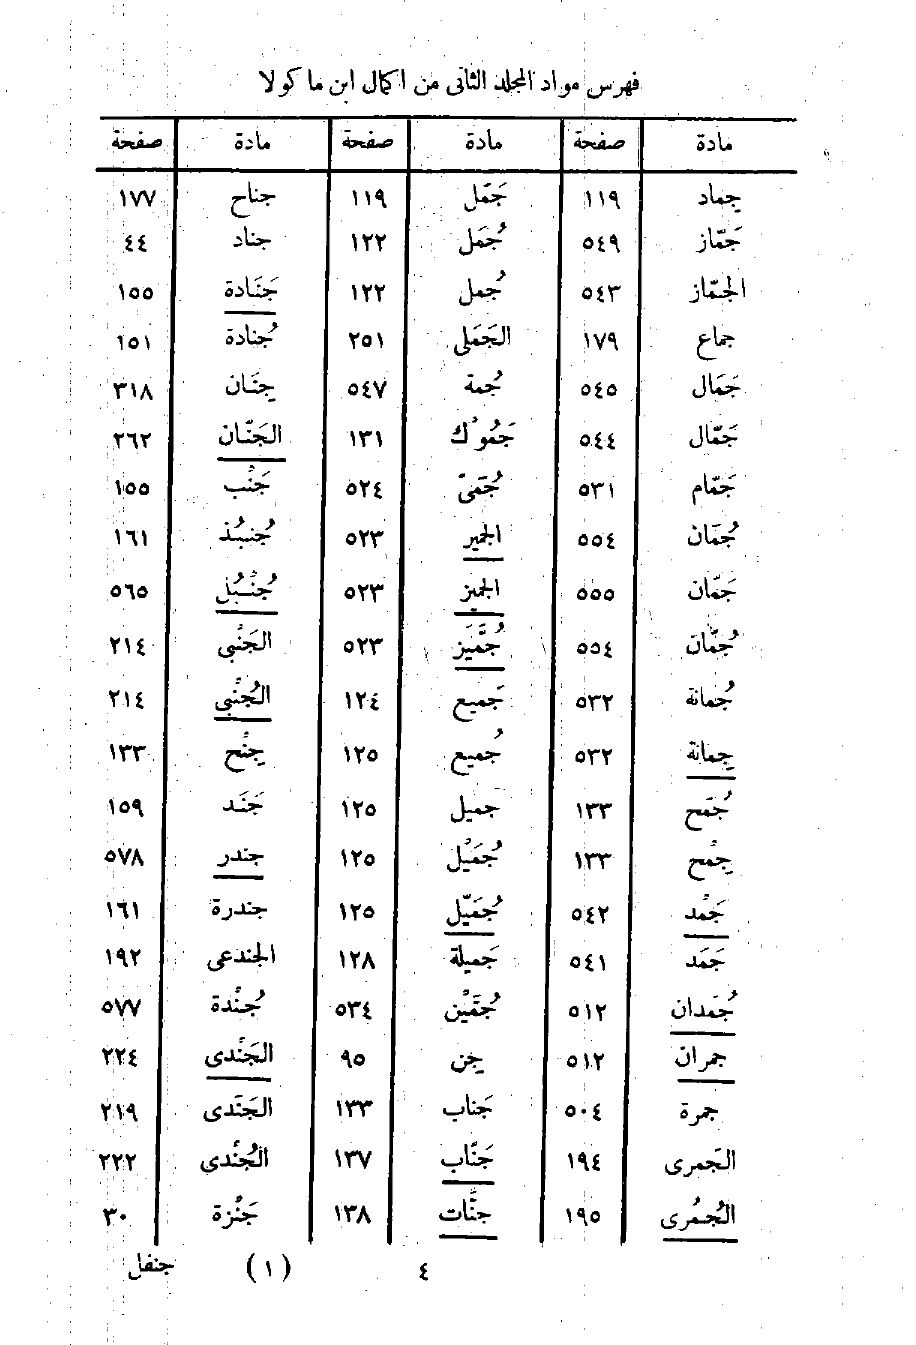 فهرس مواد المجلد الثاني من اكمال ابن ماكولا
مادة صفحة مادة صفحة مادة صفحة
جِماد ١١٩ جَمّل ١١٩ جناح ١٧٧
جَمّاز ٥٤٩ جُمَل ١٢٢ جناد ٤٤
الجمّاز ٥٤٣ جُمل ١٢٢ جَنَادة ١٥٥
جماع ١٧٩ الجَمَلى ٢٥١ جُنادة ١٥١
جَمَال ٥٤٥ جُمة ٥٤٧ جِنَان ٣١٨
جَمّال ٥٤٤ جَمُوك ١٣١ الجَنّان ٢٦٢
جَمّام ٥٣١ جُمَىّ ٥٢٤ جَنْب ١٥٥
جُمَان ٥٥٤ الجمير ٥٢٣ جُنبُذ ١٦١
جَمّان ٥٥٥ الجميز ٥٢٣ جُنْبُل ٥٦٥
جُمّان ٥٥٤ جُمَّيَز ٥٢٣ الجَنْبي ٢١٤
جُمانة ٥٣٢ جَميع ١٢٤ الجُنْبي ٢١٤
جِمانة ٥٣٢ جُميع ١٢٥ جِنْح ١٣٣
جُمَح ١٣٣ جميل ١٢٥ جَنَد ١٥٩
جِمْح ١٣٣ جُمَيْل ١٢٥ جندر ٥٧٨
جَمْد ٥٤٢ جُمَيّل ١٢٥ جندرة ١٦١
جَمَد ٥٤١ جَميلة ١٢٨ الجندعى ١٩٢
جُمَدان ٥١٢ جُمَيْن ٥٣٤ جُنْدة ٥٧٧
جمران ٥١٢ جِن ٩٥ الجَنْدى ٢٢٤
جمرة ٥٠٤ جَناب ١٣٣ الجَنَدى ٢١٩
الجَمرى ١٩٤ جَنَّاب ١٣٧ الجُنْدى ٢٢٢
الجُمْرى ١٩٥ جنَّات ١٣٨ جَنْزة ٣٠
٤ (١) جنفل